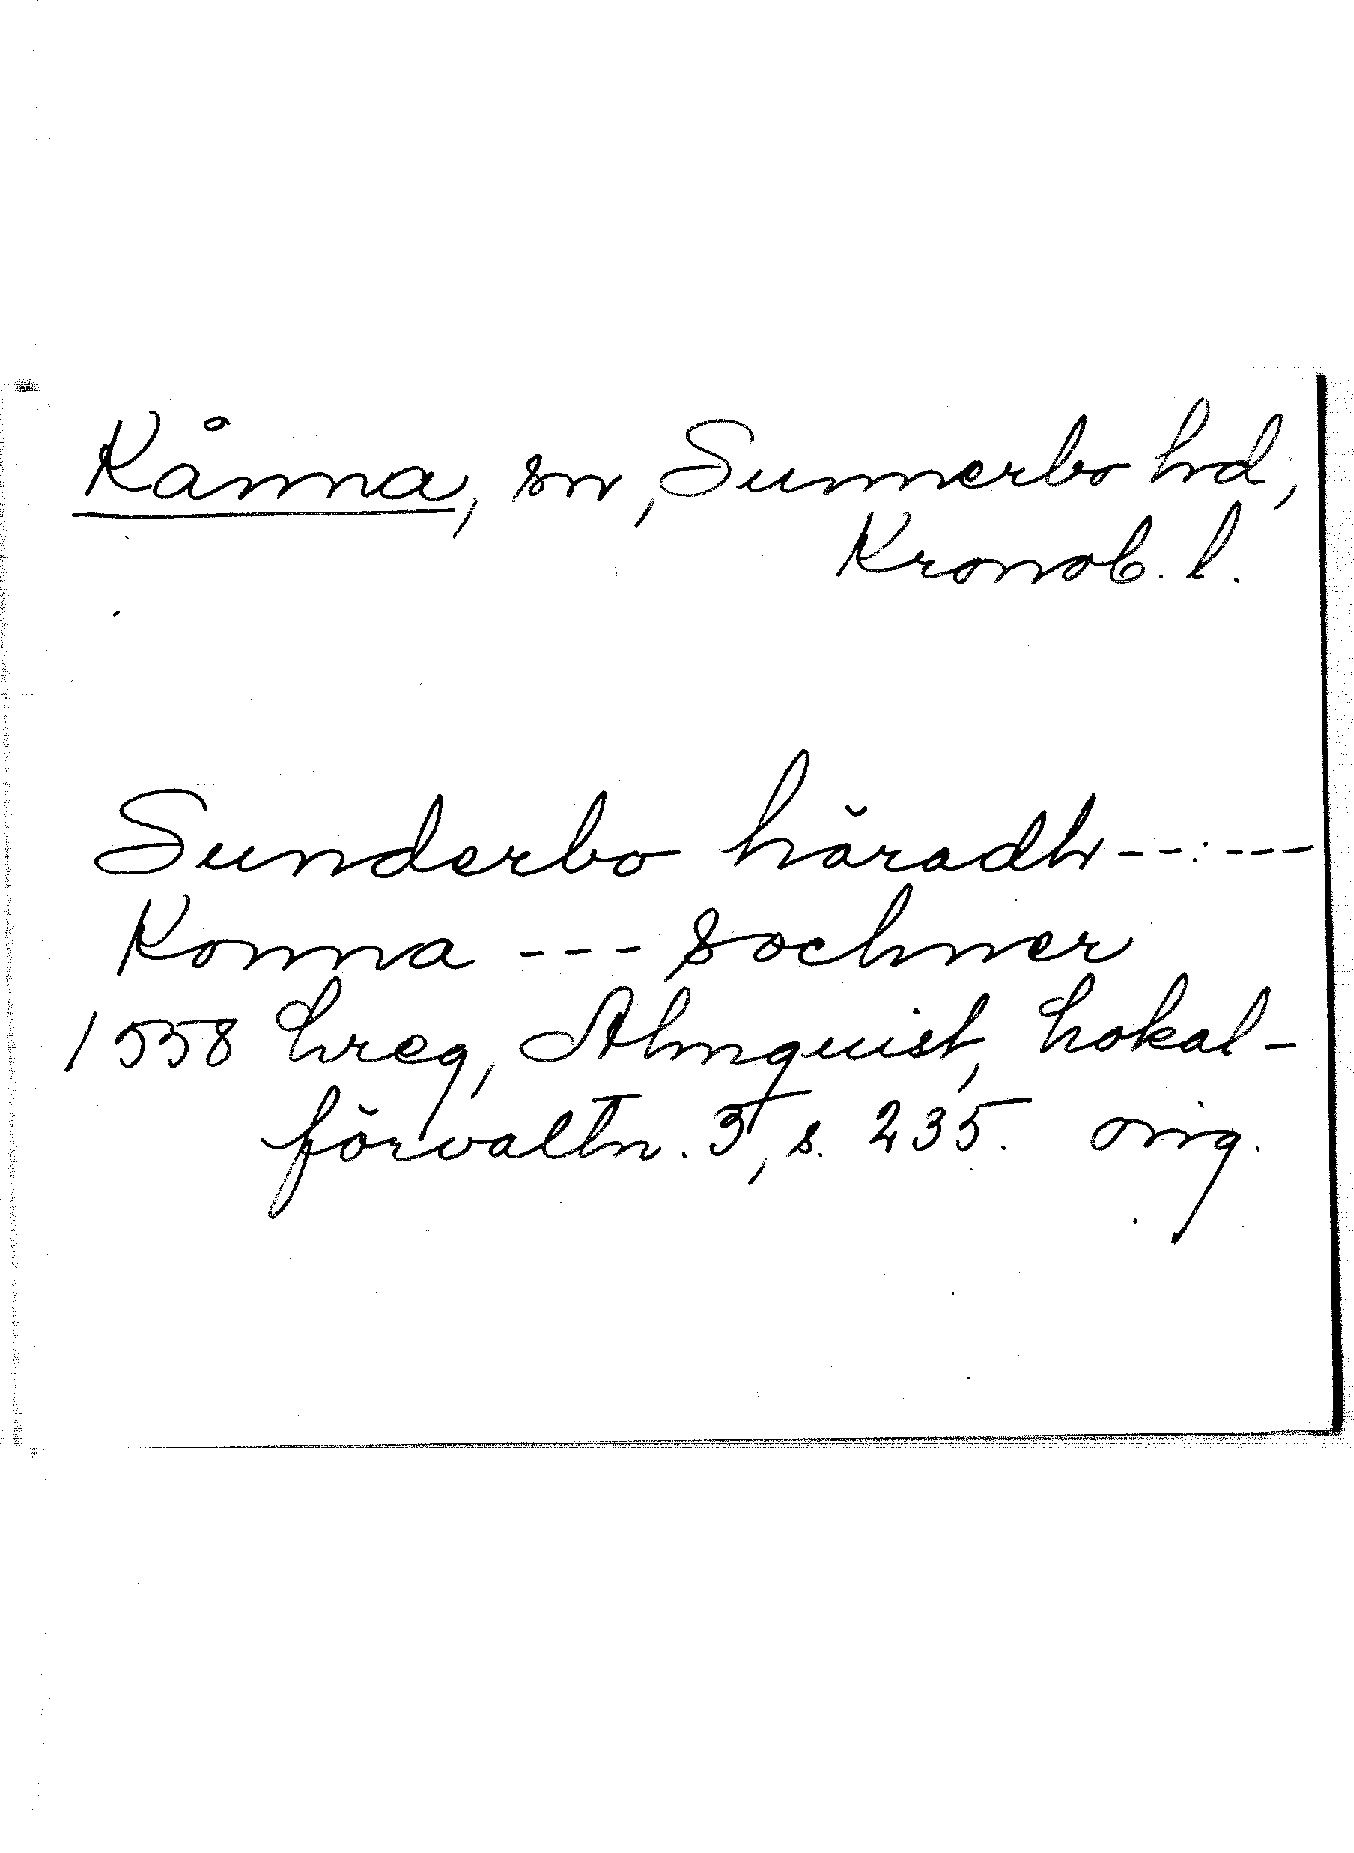 Kånna, sn, Sunnerbo hd,
Kronob. l.
Sunderbo häradh-------
Konna --- sochner
1558 hreg, Almquist, Lokal-
förvaltn. 3, s. 235. orig.